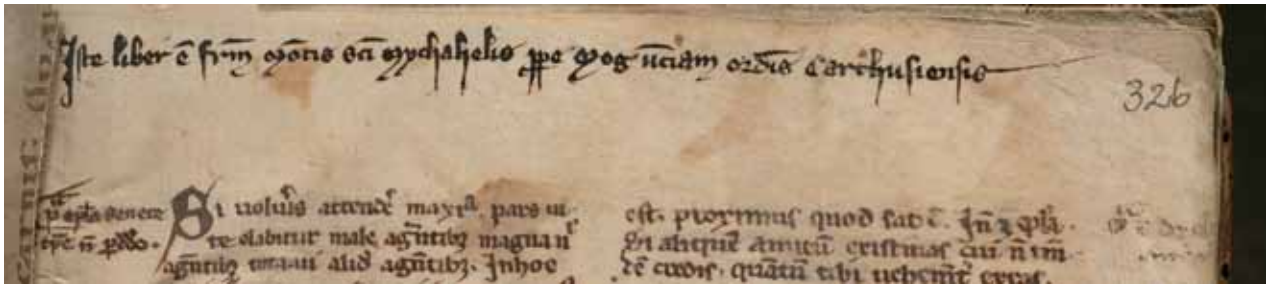 Iste liber ē frm̄ mōtis sci mychahelis ꝓpe mogūciam ordīs carthusiensis
326
epl̄a Senece
tꝑe n̄ ꝑdēdo.
Si uolu͛is attende͛ maxīa pars ui-
te elabitur male agentibꝫ magna n
agentibꝫ tota ui alid agentibꝫ. In hoc
est. proximus quod sat ē. In ꝫ epl̄a.
Si aliquē amicū existimas cui n̄
tē credis. quātū tibi uehemt͛ erras.